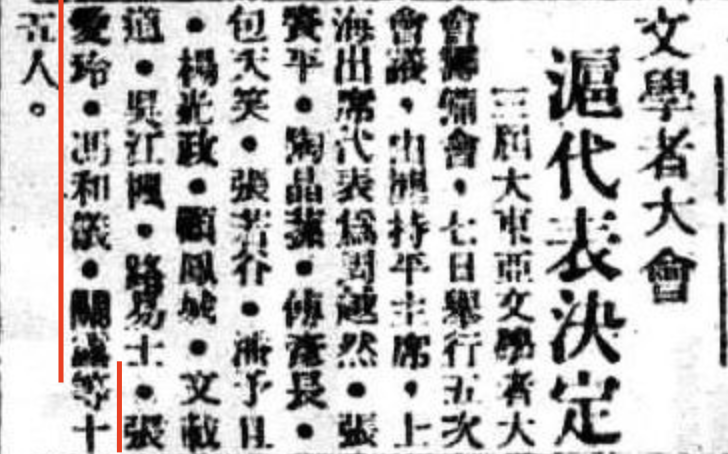 文學者大會
滬代表決定
三屆大東亞文學者大
會籌備會，七日舉行五次
會議，由柳持平主席，上
海出席代表爲周越然•張
資平•陶晶孫•傅彥長•
包天笑•張若谷•潘予且
•楊光政•顧鳳城•文載
道•吳江楓•路易士•張
愛玲•馮和儀•關露等十
五人。